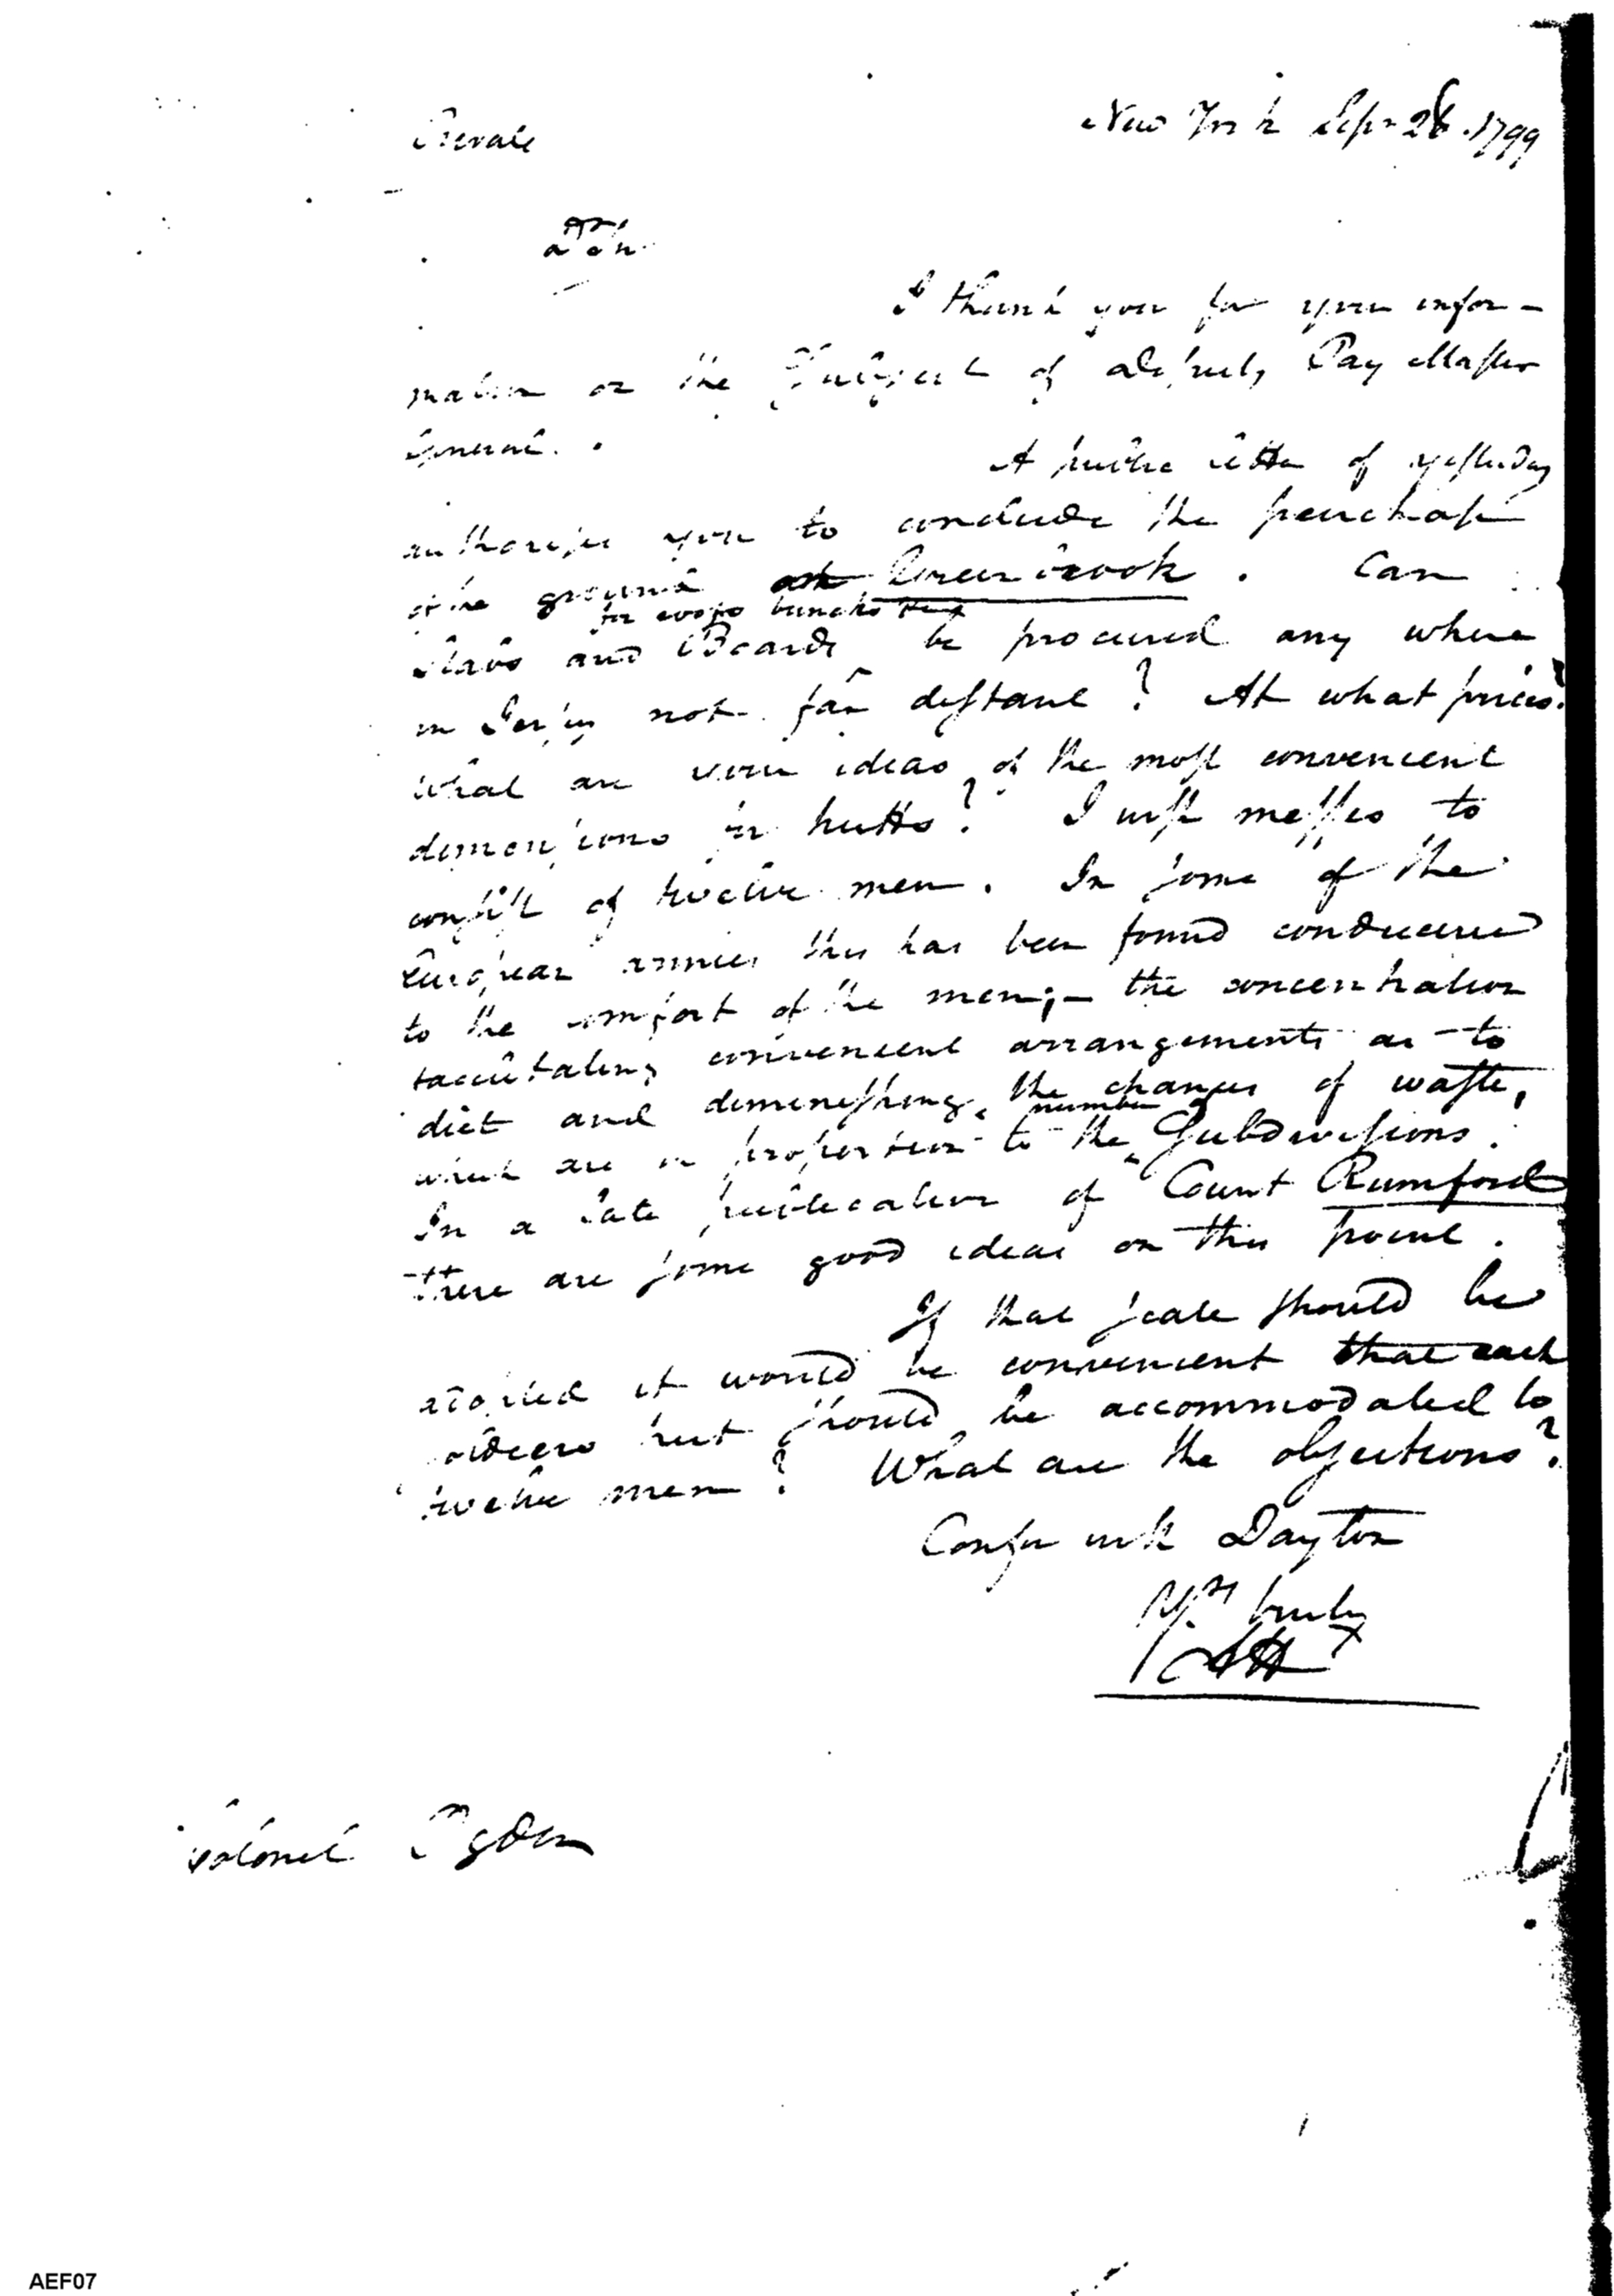 Private
New York Sepr 26. 1799
I thank you for your infor-
mation on the Subject of Deputy Pay Master
General.
A public letter of yesterday
authorises you to conclude the purchase
of the ground at Green brook. Can
for roofs bunks
Slabs and Boards be procured any where
in Jersey not far distant? At what prices?
What are your ideas of the most convenient
dimensions for hutts? I wish messes to
consist of twelve men. In some of the
European armies this has been found conducive
to the comfort of the men; — the concentration
facilitating convenient arrangements as to
diet and diminishing the chances of waste,
number of
which are in proportion to the Subdivisions.
In a late publication of Count Rumford
there are some good ideas on this point.
If that scale should be
adopted it would be convenient that each
soldiers hut should be accommodated to
twelve men? What are the objections?
Confer with Dayton
Yrs truly
AH
Colonel Ogden
AEF07